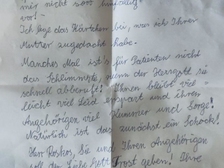 mir nicht
vor!
Ich lege das Kärtchen bei, was ich Ihrer
Mutter zugedacht habe.
Manches Mal ist's für Patienten nicht
das Schlimmste, wenn der Herrgott sie
schnell abberuft! Ihnen bleibt
viel Leid erspart und ihren
Angehörigen viel Kummer und Sorge!
Natürlich ist das zunächst ein Schock!
Ihnen und Ihren Angehörigen
Gott geben! Ihre